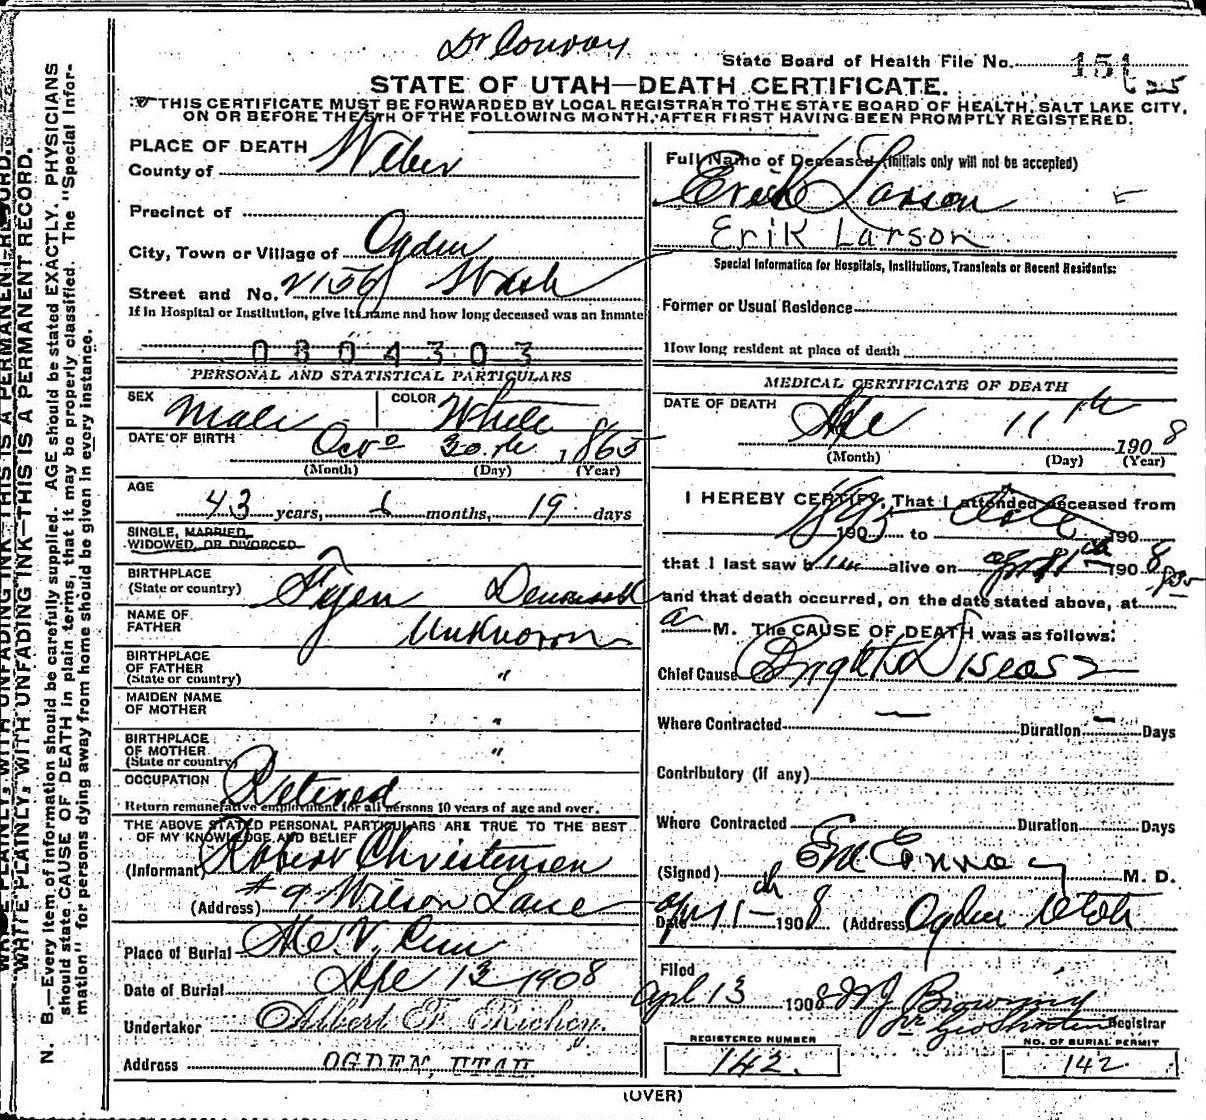 Dr Conroy
State Board of Health File No. 151 25
STATE OF UTAH—DEATH CERTIFICATE.
THIS CERTIFICATE MUST BE FORWARDED BY LOCAL REGISTRAR TO THE STATE BOARD OF HEALTH, SALT LAKE CITY,
ON OR BEFORE THE 5TH OF THE FOLLOWING MONTH, AFTER FIRST HAVING BEEN PROMPTLY REGISTERED.
PLACE OF DEATH
County of Weber
Precinct of
City, Town or Village of Ogden
Street and No. 2156 Wash
If in Hospital or Institution, give its name and how long deceased was an Inmate
0804303
PERSONAL AND STATISTICAL PARTICULARS
SEX Male COLOR White
DATE OF BIRTH Oct 30th 1865
(Month) (Day) (Year)
AGE
43 years, 6 months, 19 days
SINGLE, MARRIED,
WIDOWED, OR DIVORCED
BIRTHPLACE
(State or country) Fyen Denmark
NAME OF
FATHER Unknown
BIRTHPLACE
OF FATHER
(State or country) "
MAIDEN NAME
OF MOTHER "
BIRTHPLACE
OF MOTHER
(State or country) "
OCCUPATION Retired
Return remunerative employment for all persons 10 years of age and over.
THE ABOVE STATED PERSONAL PARTICULARS ARE TRUE TO THE BEST
OF MY KNOWLEDGE AND BELIEF
(Informant) Robert Christensen
(Address) # 9 Wilson Lane
Place of Burial Mt. V. Cem
Date of Burial 13 1908
Undertaker Albert F. Richey.
Address OGDEN, UTAH.
Full Name of Deceased (Initials only will not be accepted)
Erik Larson
Erik Larson
Special Information for Hospitals, Institutions, Transients or Recent Residents:
Former or Usual Residence
How long resident at place of death
MEDICAL CERTIFICATE OF DEATH
DATE OF DEATH
11th 1908
(Month) (Day) (Year)
I HEREBY CERTIFY, That I attended deceased from
190 to 190
that I last saw him alive on Apr 11th 1908
and that death occurred, on the date stated above, at
a M. The CAUSE OF DEATH was as follows:
Chief Cause Brights Disease
Where Contracted — Duration — Days
Contributory (if any)
Where Contracted Duration Days
(Signed) EM Conroy M. D.
Date Apr 11th 1908 (Address) Ogden Utah
Filed
Apl 13 1908 W J Browning
Registrar
REGISTERED NUMBER
142.
NO. OF BURIAL PERMIT
142
(OVER)
N. B.—Every item of information should be carefully supplied. AGE should be stated EXACTLY. PHYSICIANS
should state CAUSE OF DEATH in plain terms, that it may be properly classified. The "Special Infor-
mation" for persons dying away from home should be given in every instance.
WRITE PLAINLY, WITH UNFADING INK—THIS IS A PERMANENT RECORD.